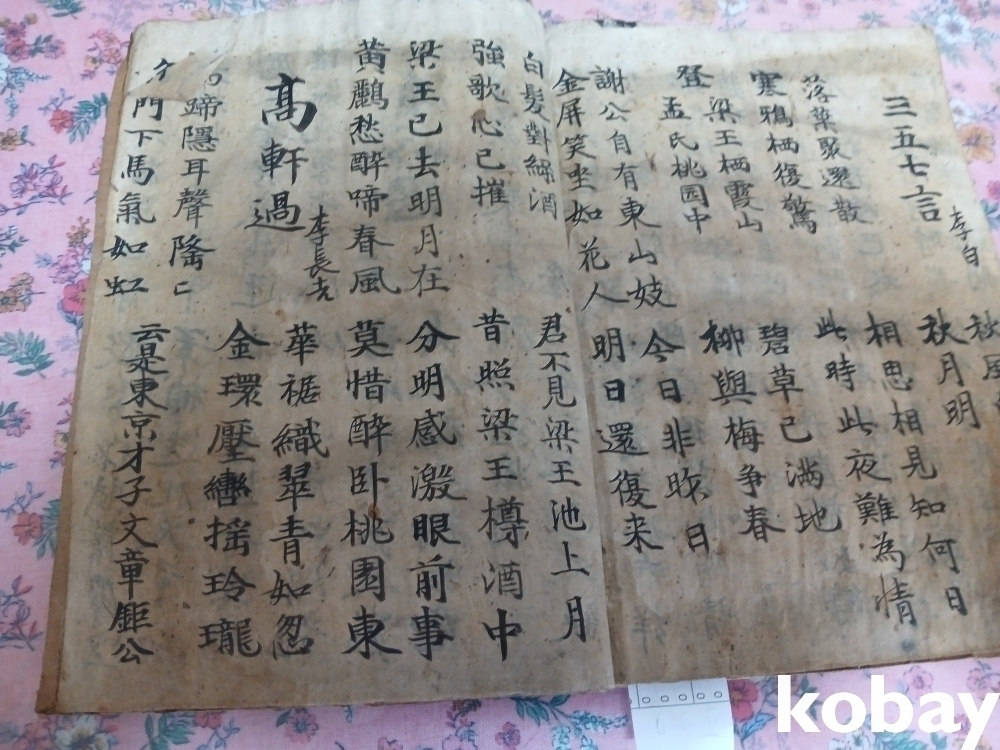 三五七言 李白
秋風
秋月明
落葉聚還散
寒鴉栖復驚
相思相見知何日
此時此夜難為情
登梁王栖霞山
孟氏桃园中
碧草已満地
柳與梅爭春
謝公自有東山妓
金屏笑坐如花人
今日非昨日
明日還復来
白髮對綠酒
強歌心已摧
君不見梁王池上月
昔照梁王樽酒中
梁王已去明月在
黄鸝愁醉啼春風
分明感激眼前事
莫惜醉卧桃園東
高軒過 李長吉
華裾織翠青如怱
金環壓轡揺玲瓏
蹄隱耳聲隆〻
門下馬氣如虹
云是東京才子文章鉅公
kobay